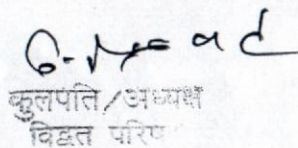 कुलपति/अध्यक्ष
विद्वत परिष